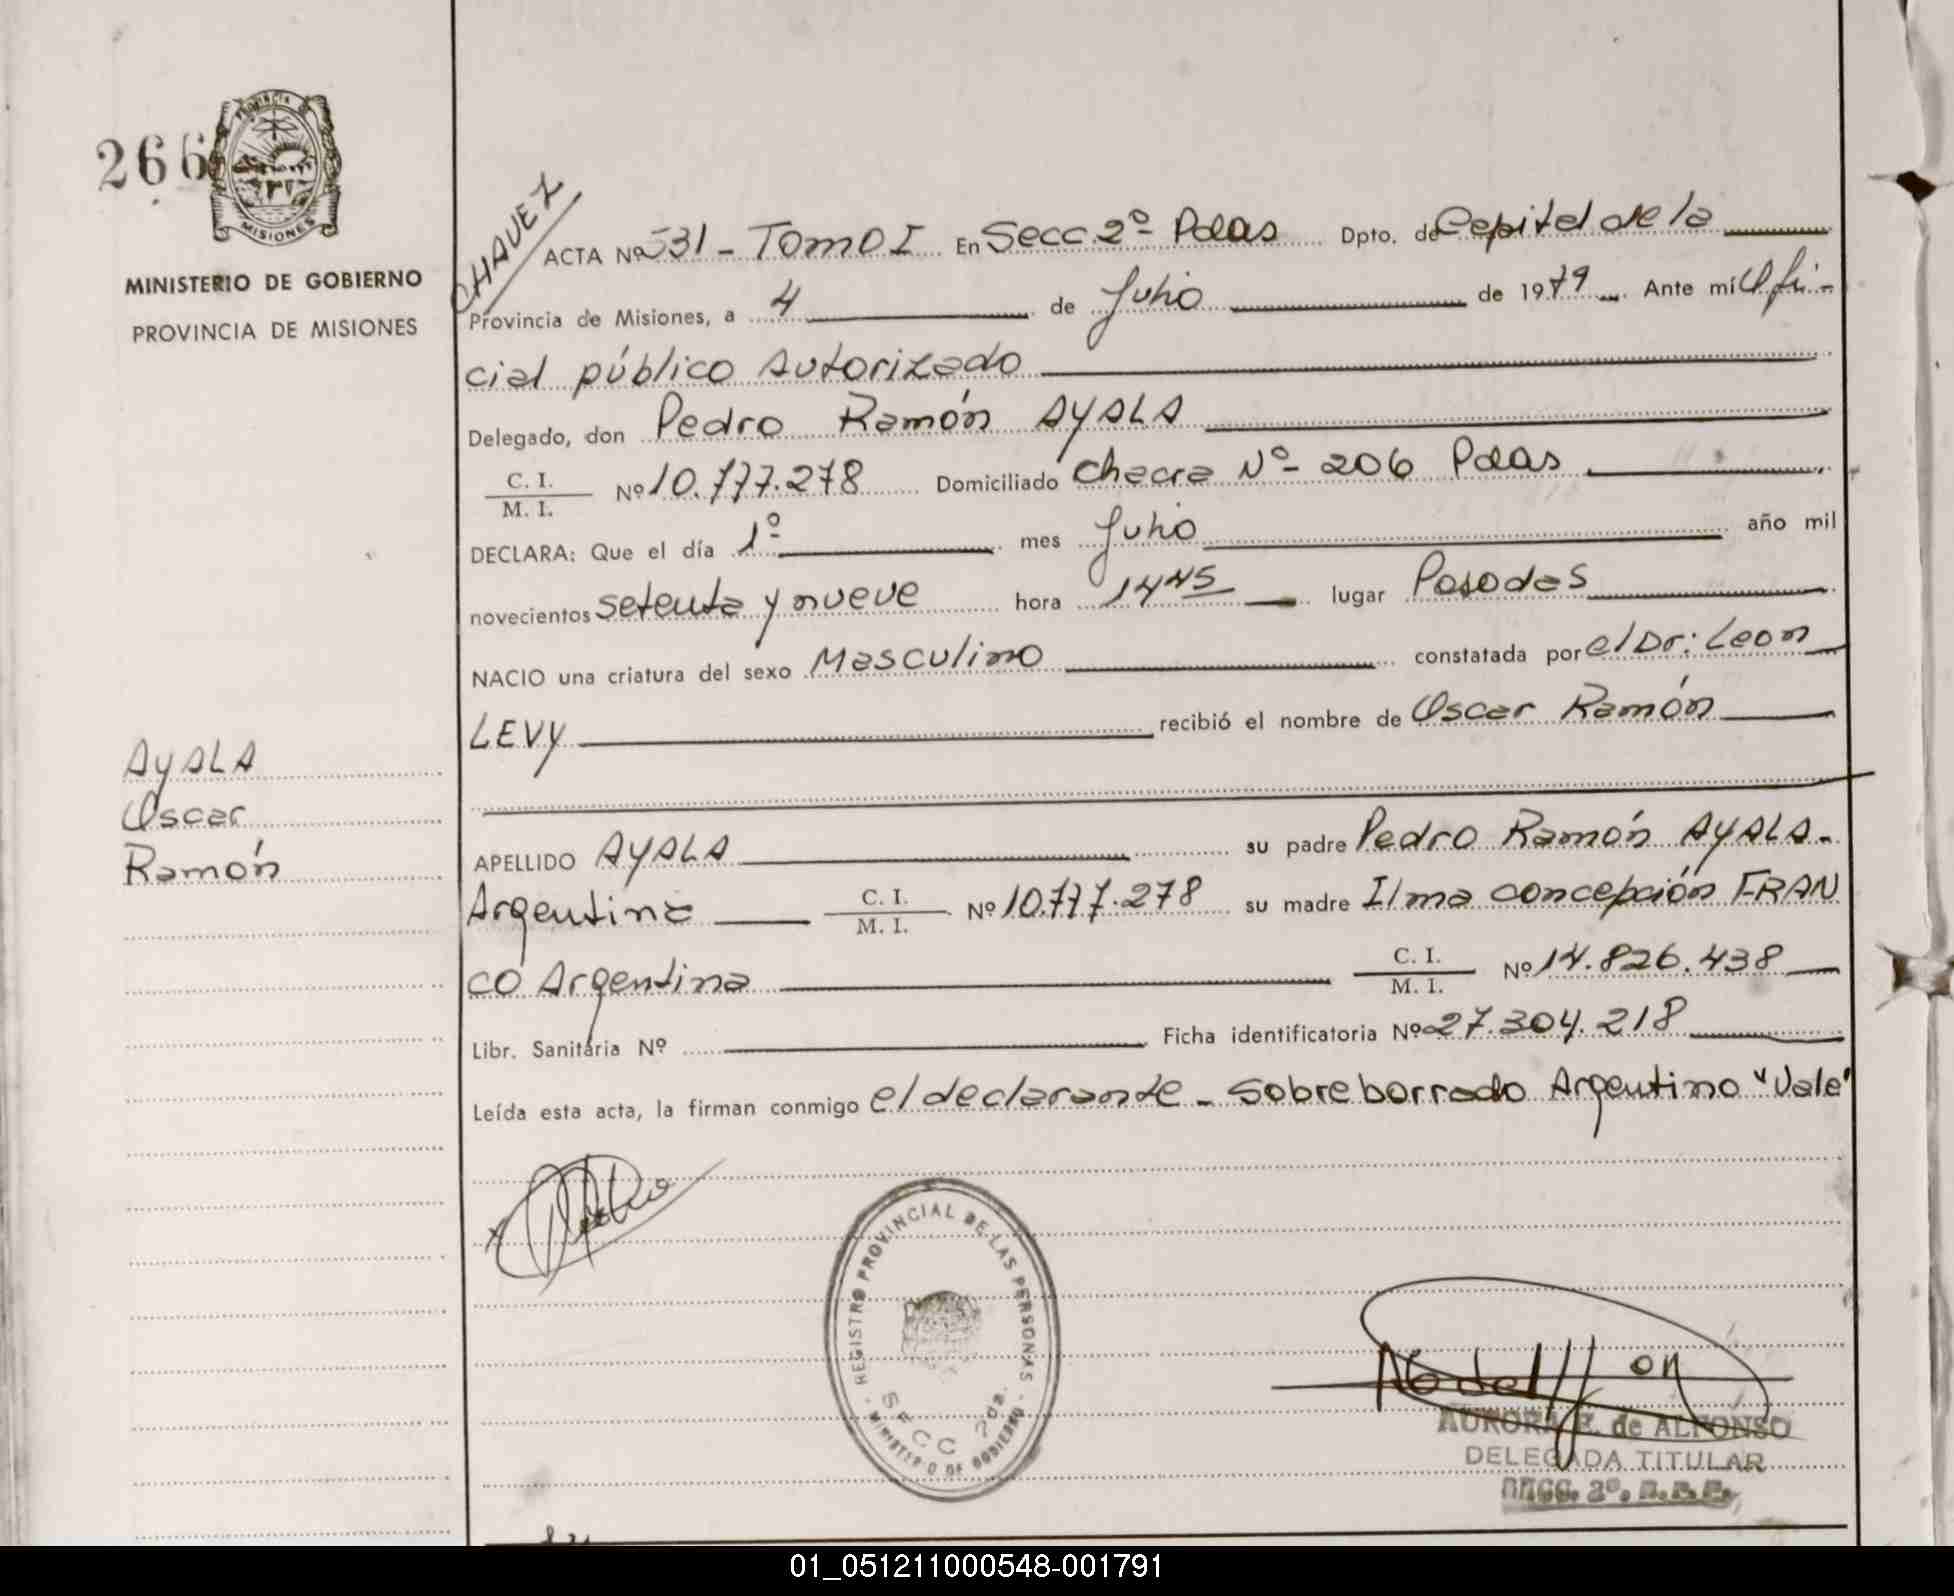 266
PROVINCIA DE
MISIONES
MINISTERIO DE GOBIERNO
PROVINCIA DE MISIONES
CHAVEZ
ACTA Nº 531 - TOMO I En Secc. 2º Pdas Dpto. de Capital de la
Provincia de Misiones, a 4 de Julio de 1979 Ante mí Ofi-
cial público Autorizado
Delegado, don Pedro Ramón AYALA
C. I. / M. I. Nº 10.777.278 Domiciliado Chacra Nº 206 Pdas
DECLARA: Que el día 1º mes Julio año mil
novecientos setenta y nueve hora 14 45 lugar Posadas
NACIO una criatura del sexo Masculino constatada por el Dr: Leon
LEVY recibió el nombre de Oscar Ramón
AYALA
Oscar
Ramón
APELLIDO AYALA su padre Pedro Ramón AYALA-
Argentino C. I. / M. I. Nº 10.777.278 su madre Ilma concepción FRAN
CO Argentina C. I. / M. I. Nº 14.826.438
Libr. Sanitaria Nº Ficha identificatoria Nº 27.304.218
Leída esta acta, la firman conmigo el declarante - sobreborrado Argentino "Vale"
REGISTRO PROVINCIAL DE LAS PERSONAS
SECC 2da.
MINISTERIO DE GOBIERNO
AURORA E. de ALFONSO
DELEGADA TITULAR
SECC. 2º. R.P.P.
01_051211000548-001791